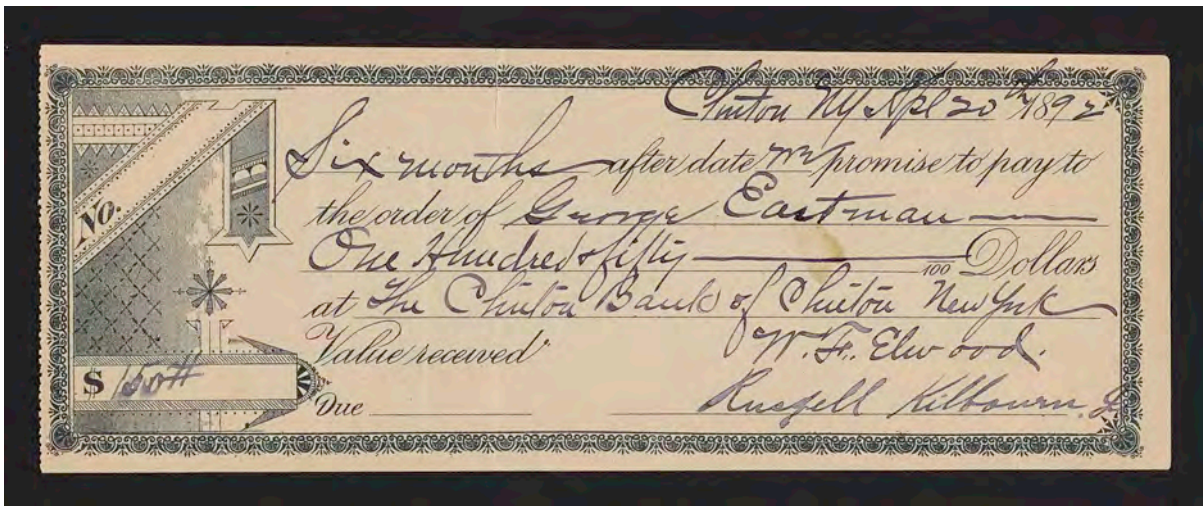 Clinton NY Apl 20th 1892
Six months after date we promise to pay to
the order of George Eastman
One Hundred & fifty /100 Dollars
at The Clinton Bank of Clinton New York
Value received W. F. Elwood.
No.
$ 150 Due Russell Kilbourn. Jr